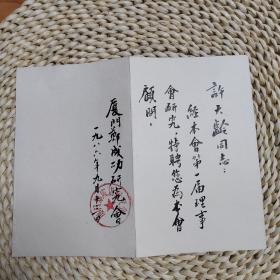 許大齡同志：
經本會第一届理事
會研究，特聘您為本會
顧问。
厦門鄭成功研究會
一九八六年九月